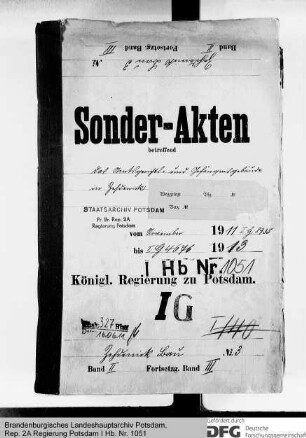 Band II Fortsetzg. Band III
Sonder-Akten
betreffend
Das Amtsgerichts- und Gefängnisgebäude
in Zehdenick
STAATSARCHIV POTSDAM
Pr. Br. Rep. 2A
Regierung Potsdam
vom November 1911
bis 1913
I Hb Nr 1051
Königl. Regierung zu Potsdam.
IG
327
Zehdenick Bau No 3
Band II Fortsetzg. Band III
Brandenburgisches Landeshauptarchiv Potsdam,
Rep. 2A Regierung Potsdam I Hb. Nr. 1051
Gefördert durch
DFG Deutsche
Forschungsgemeinschaft